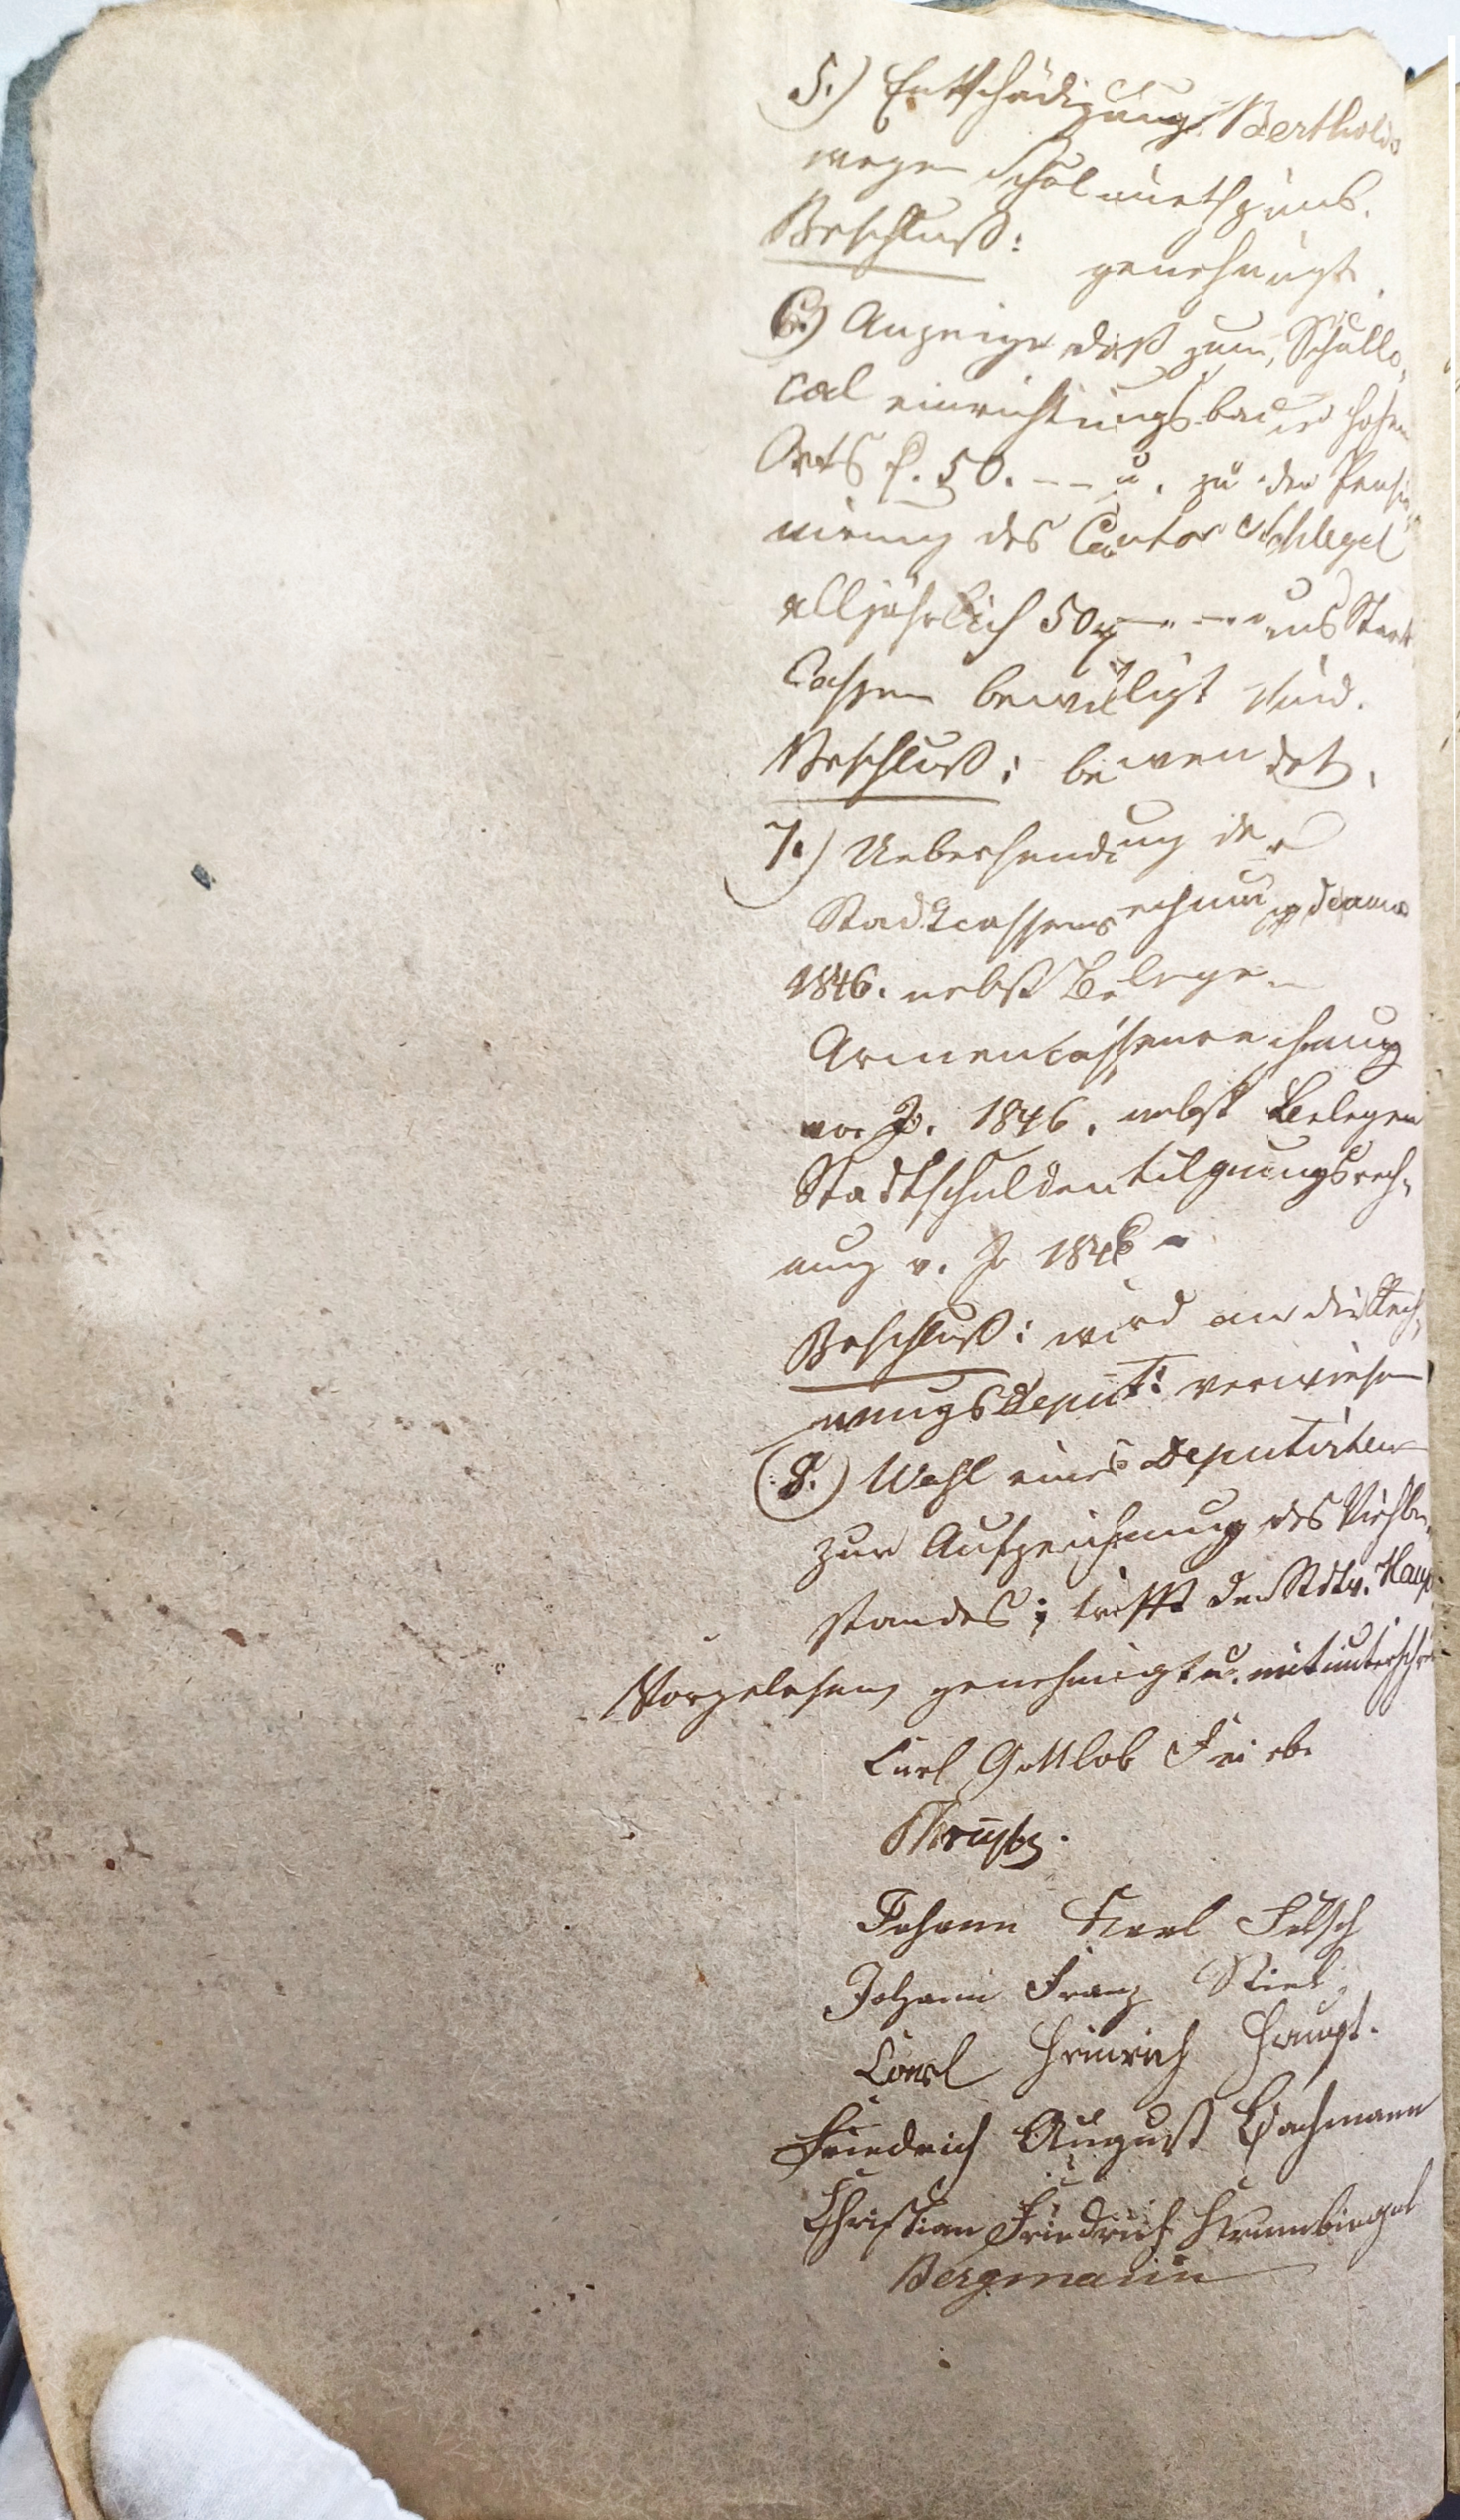 5.) Entschädigung Bertholds
wegen Schulmiethzins.
Beschluß: genehmigt.
6.) Anzeige daß zum Schullo-
cal einrichtungsbau hohen
Orts f. 50. -- u. zu der Pensio-
nirung des Cantor Schlegel
alljährlich 50 — — aus Staats
Cassen bewilligt sind.
Beschluß: bewendet.
7.) Uebersendung der
Stadtcassenrechnung
1846. nebst Belegen
Armencassenrechnung
vom J. 1846. nebst Belegen
Stadtschuldentilgungsrech-
nung v. J. 1846 -
Beschluß: wird an die Rech-
nungsdeput: verwiesen
8.) Wahl eines Deputirten
zur Aufzeichnung des Viehbe-
standes; trifft den Stdtv. Haupt
Vorgelesen, genehmigt u. mitunterschr
Carl Gottlob
Johann Karl
Johann Franz
Carl Heinrich Haupt.
Friedrich August Bachmann
Christian Friedrich Krumbiegel
Bergmann